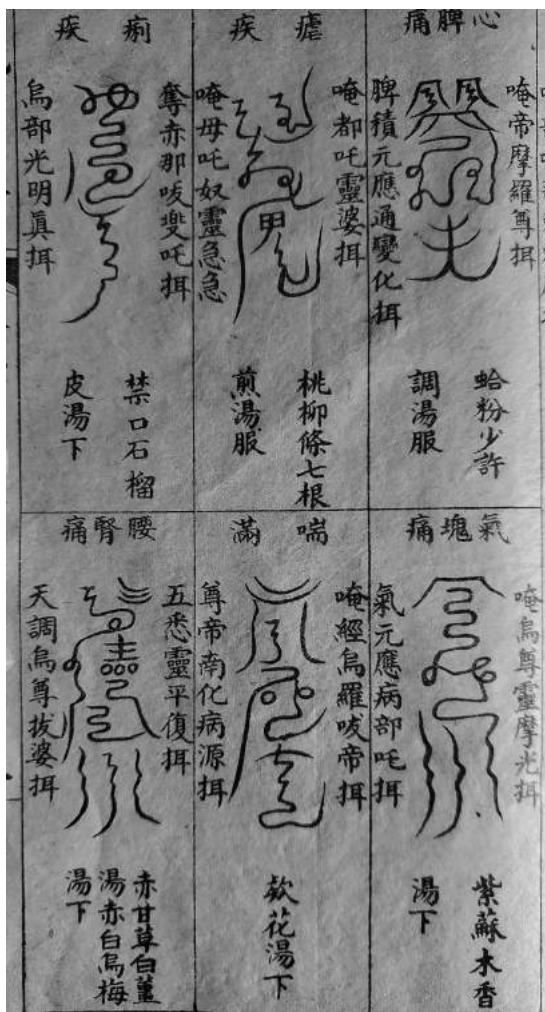 心脾痛
唵帝摩羅尊挕
脾積元應通變化挕
蛤粉少許
調湯服
瘧疾
唵都吒靈婆挕
唵母吒奴靈急急
桃柳條七根
煎湯服
痢疾
奪赤那唆燮吒挕
烏部光明眞挕
禁口石榴
皮湯下
氣塊痛
唵烏尊靈摩光挕
氣元應病部吒挕
紫蘇木香
湯下
喘滿
唵經烏羅唆帝挕
尊帝南化病源挕
欵花湯下
腰腎痛
五悉靈平復挕
天調烏尊拔婆挕
赤甘草白薑
湯赤白烏梅
湯下